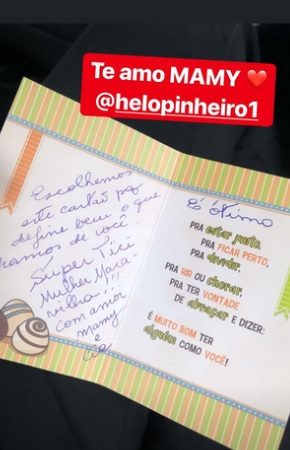 Te amo MAMY ❤️
@helopinheiro1
Escolhemos
este cartão pq
define bem o que
de você.
Super Tici
Mulher Mara-
vilha!!!
com amor
mamy
e
É ótimo
PRA estar junto.
PRA FICAR PERTO.
PRA dividir.
PRA RIR OU chorar.
PRA TER VONTADE
DE abraçar E DIZER:
É MUITO BOM TER
alguém COMO VOCÊ!